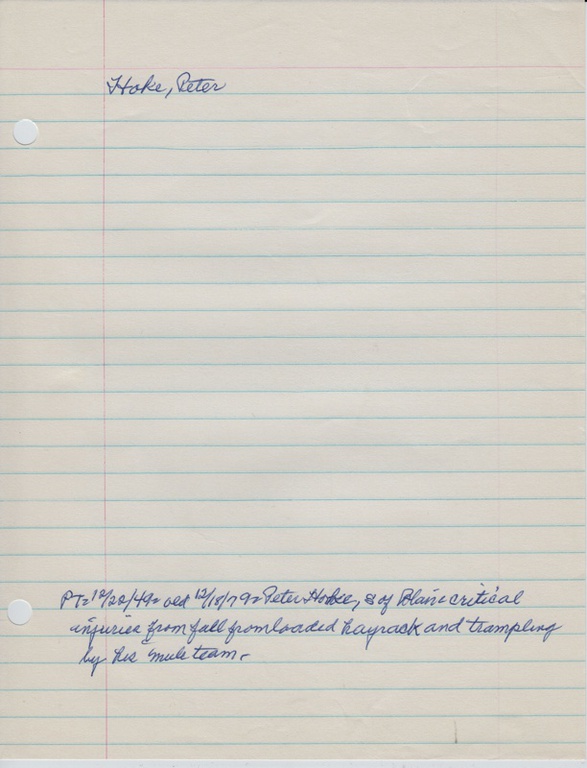 Hoke, Peter
PT= 12/22/49= wed 12/18/79= Peter Hoke, s of Blain= critical
injuries from fall from loaded hayrack and trampling
by his mule team.-